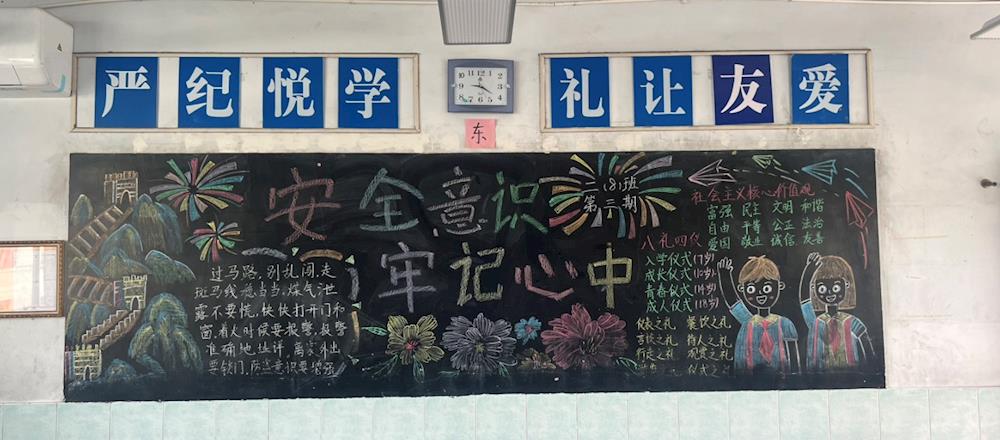 严纪悦学
礼让友爱
东
安全意识
牢记心中
二(8)班
第三期
过马路,别乱闯,走
斑马线稳当当,煤气泄
露不要慌,快快打开门和
窗,着火时候要报警,报警
准确地址详,离家外出
要锁门,防盗意识要增强
社会主义核心价值观
富强 民主 文明 和谐
自由 平等 公正 法治
爱国 敬业 诚信 友善
八礼四仪
入学仪式(7岁)
成长仪式(10岁)
青春仪式(14岁)
成人仪式(18岁)
仪表之礼 餐饮之礼
言谈之礼 待人之礼
行走之礼 观赏之礼
仪式之礼